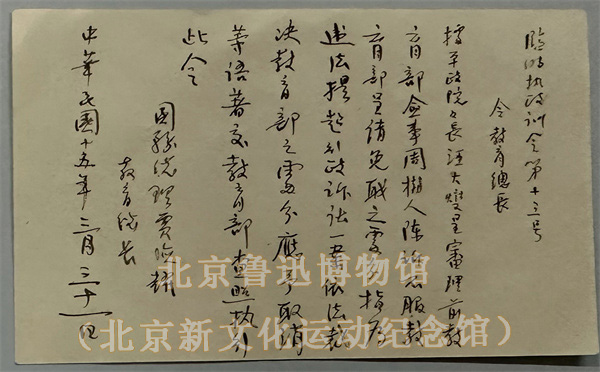 临时执政训令第十三号
令教育总長
據平政院々長汪大燮呈審理前教
育部佥事周樹人陈诉不服教
育部呈请免職之處分指为
违法提起行政訴讼一案依法裁
决教育部之處分應予取消
等语著交教育部查照执行
此令
国務总理贾德耀
教育总长
中華民國十五年三月三十一日
北京鲁迅博物馆
（北京新文化运动纪念馆）